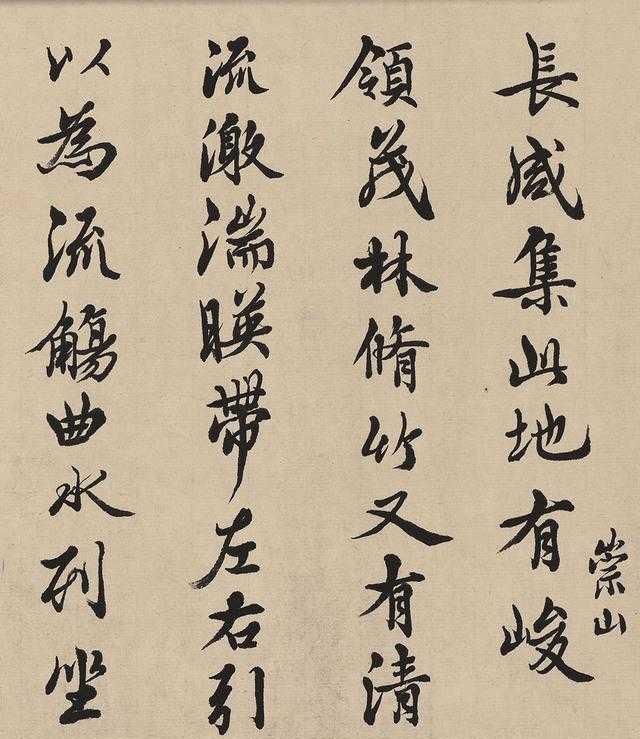 崇山
長咸集此地有峻
領茂林脩竹又有清
流激湍暎帶左右引
以為流觴曲水列坐